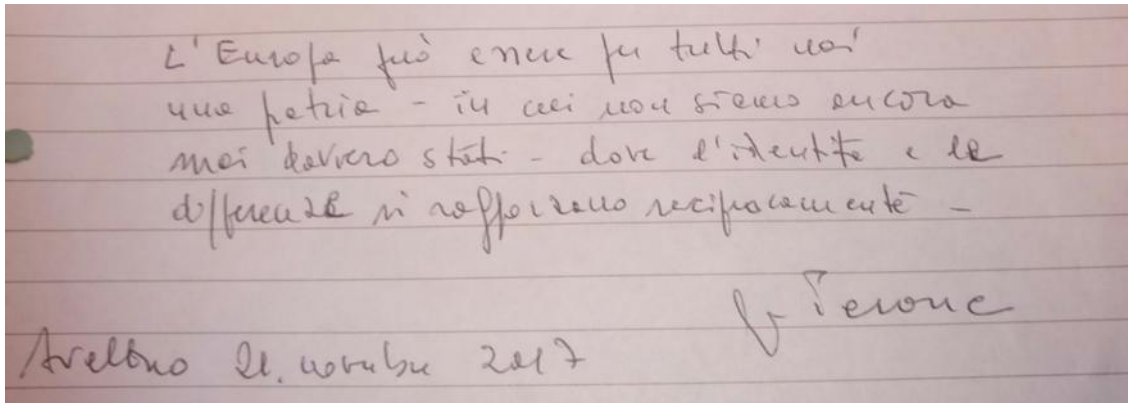 L'Europa può essere per tutti noi
una patria - in cui non siamo ancora
mai davvero stati - dove l'identità e le
differenze si rafforzano reciprocamente -
Avellino 21. novembre 2017